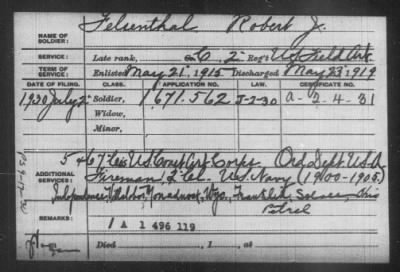 NAME OF SOLDIER: Felsenthal Robert J.
SERVICE: Late rank, C 2 Reg't US Field Art.
TERM OF SERVICE: Enlisted May 21 1915 Discharged May 23 1919
DATE OF FILING. CLASS. APPLICATION NO. LAW. CERTIFICATE NO.
1930 July 2 Soldier, 1 671.562 J-2-30 a-2-4-31
Widow,
Minor,
ADDITIONAL SERVICES: 5 & 67 Cos U.S. Coast Art. Corps. Ord. Dept. U.S.A
Fireman 2" Cl. U.S. Navy (1900-1905)
Independence, Wyo., Franklin, Solace,
Petrel
REMARKS: 1 A 1 496 119
Died , 1 , at